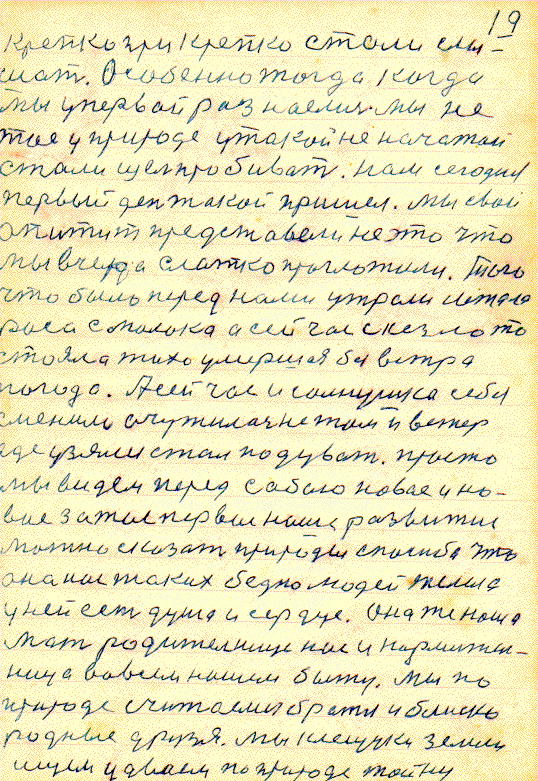 19
крепкозри крепко стали слы-
шат. Особенно тогда когда
мы у первой раз наелис. мы не
тое у природе у такой не начатой
стали щел пробиват. нам сегодня
первый ден такой пришел. мы свой
опитит представели не это что
мы вчера слатко прогложили. Того
что было перед нами утрали лежала
роса с молока а сейчас скезло то
стояла тихо умершая без ветра
погода. А сейчас и солнушка себя
сменило очутилас не там и ветер
где узялис стал подуват. просто
мы видем перед собою новае и но-
вое затое первое наше развитие
можно сказат природы спасиба что
она нас таких бедно людей жеlила
у ней ест душа и сердце. Она же наша
мат родителница нас и кармител-
ница вовсем нашем быту. мы по
природе считаемы братя и блиско
родные друзя. мы клещуки земли
ищем и дваем по природе тайну